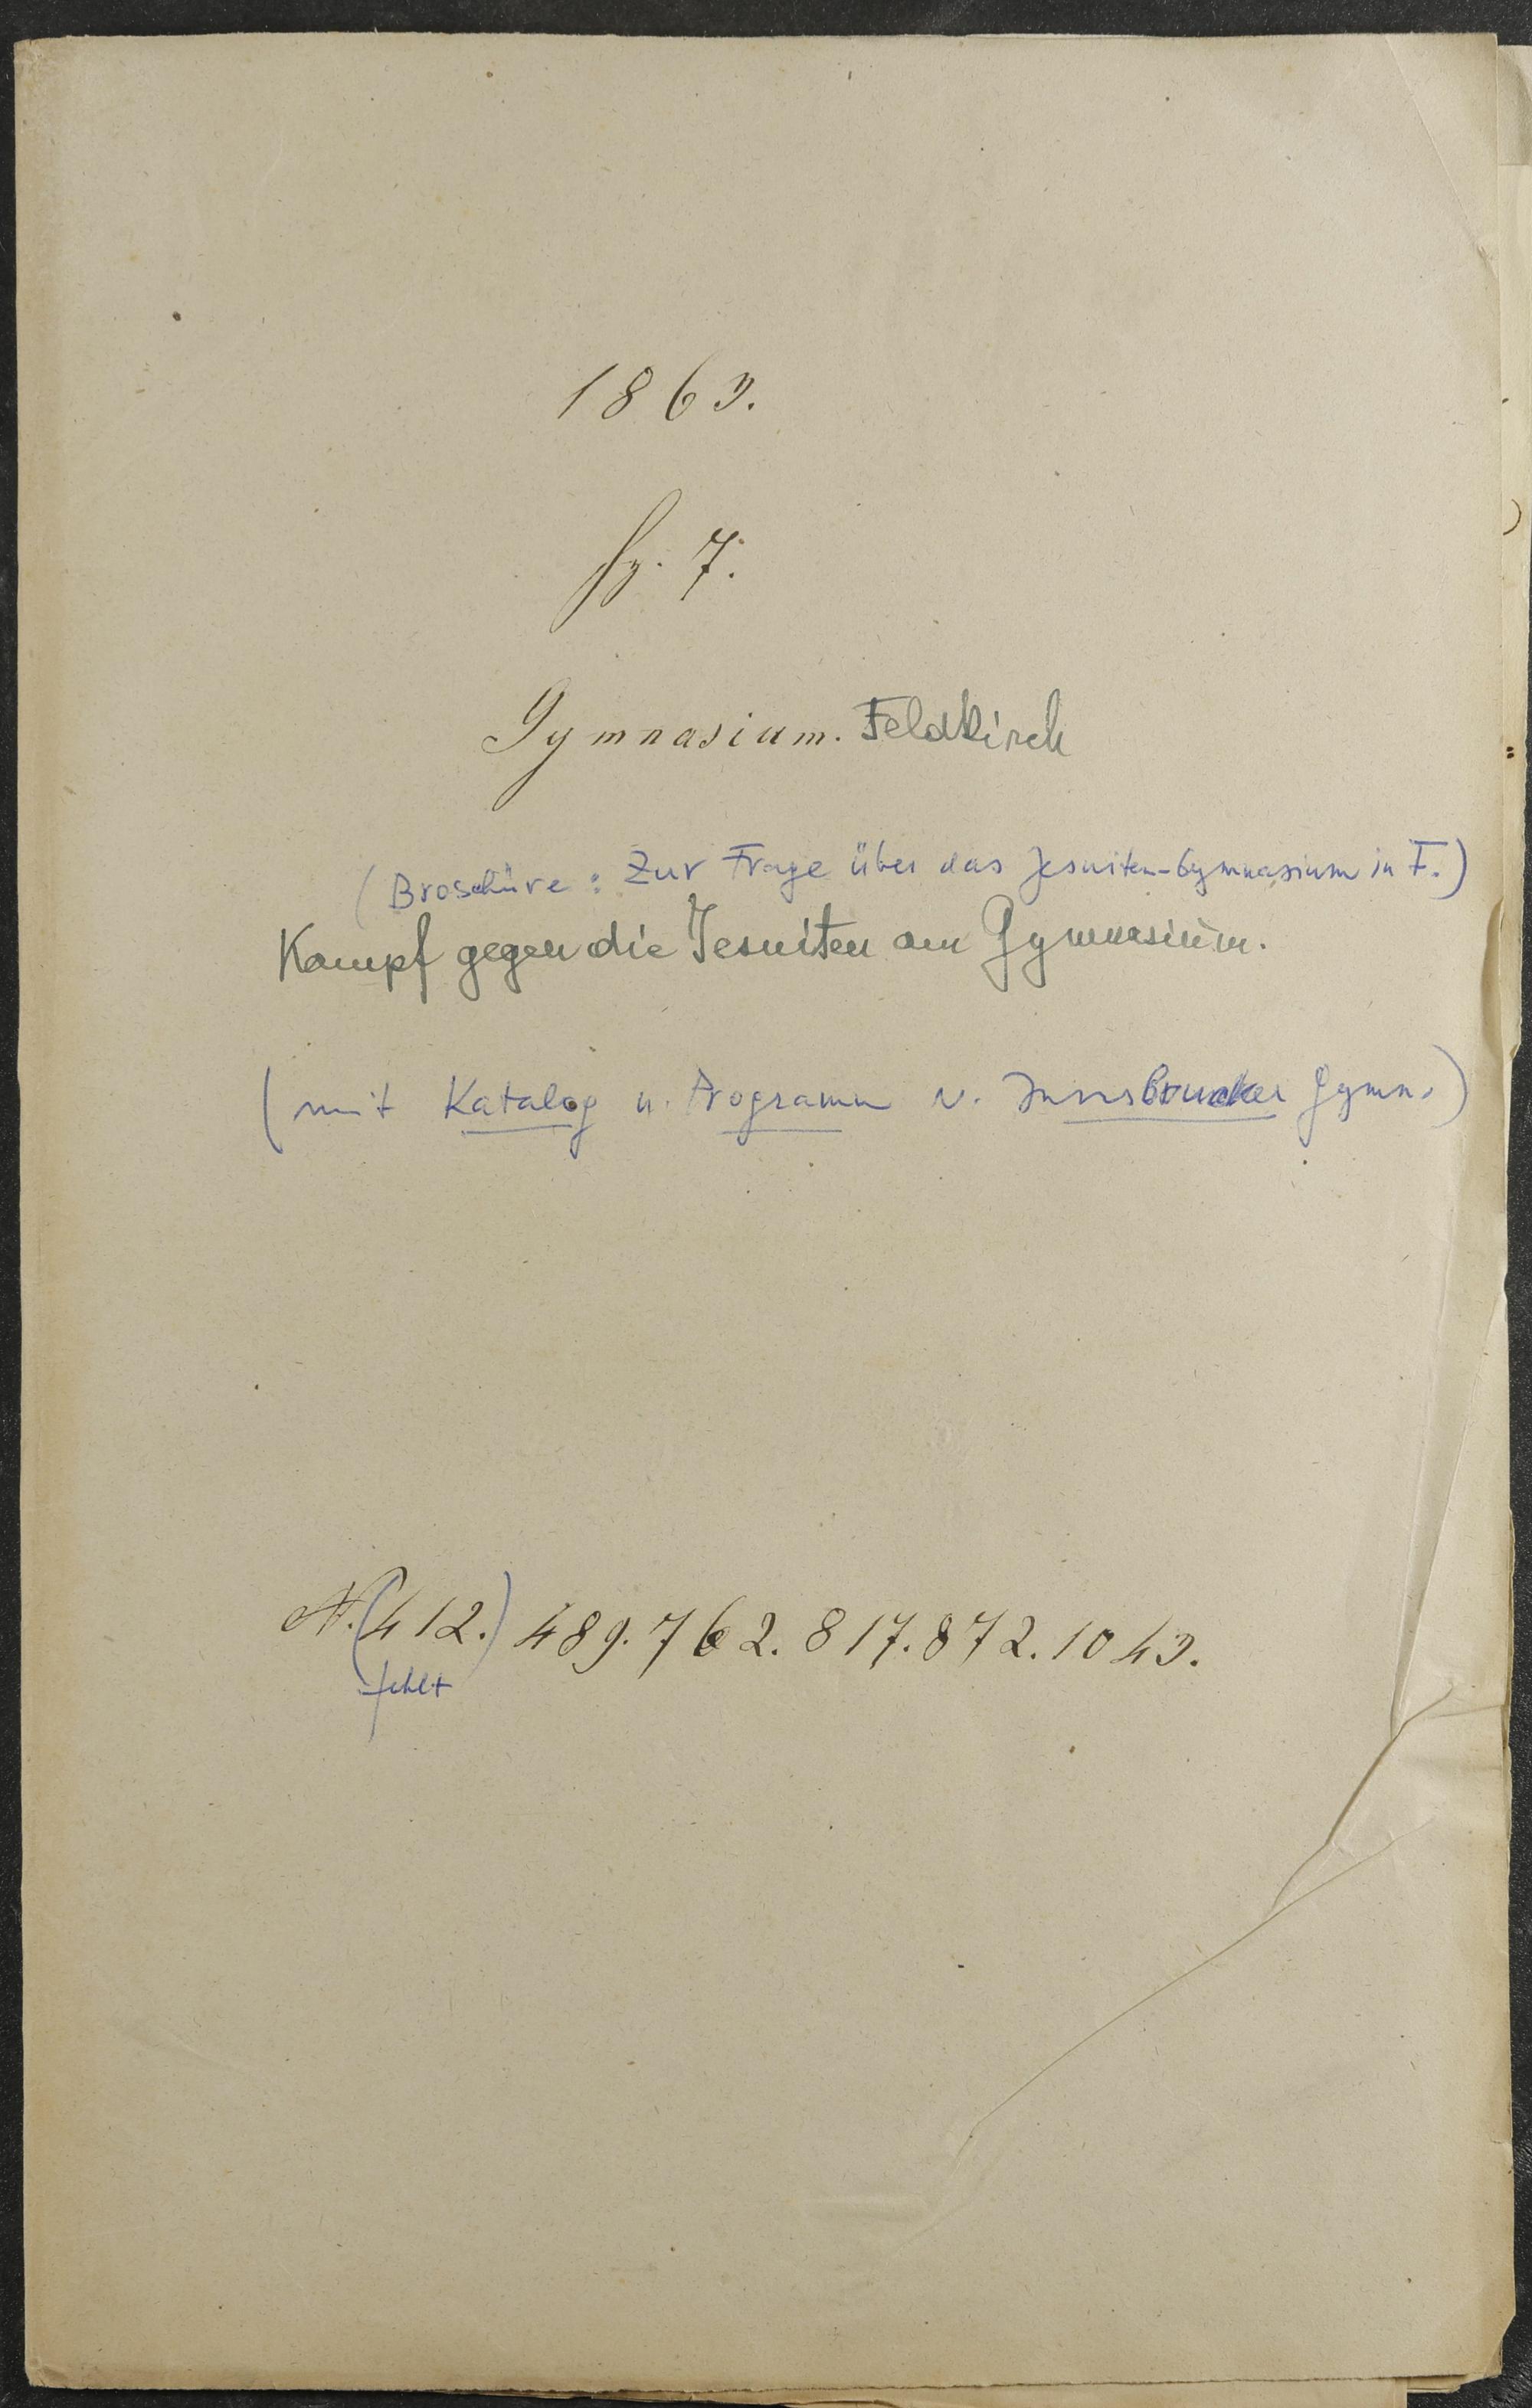 1863.
Hz. 7.
Gymnasium. Feldkirch
(Broschüre: Zur Frage über das Jesuiten-Gymnasium in F.)
Kampf gegen die Jesuiten am Gymnasium.
(mit Katalog u. Programm v. Innsbrucker Gymn.)
N. (412.) 489. 762. 817. 872. 1043.
fehlt